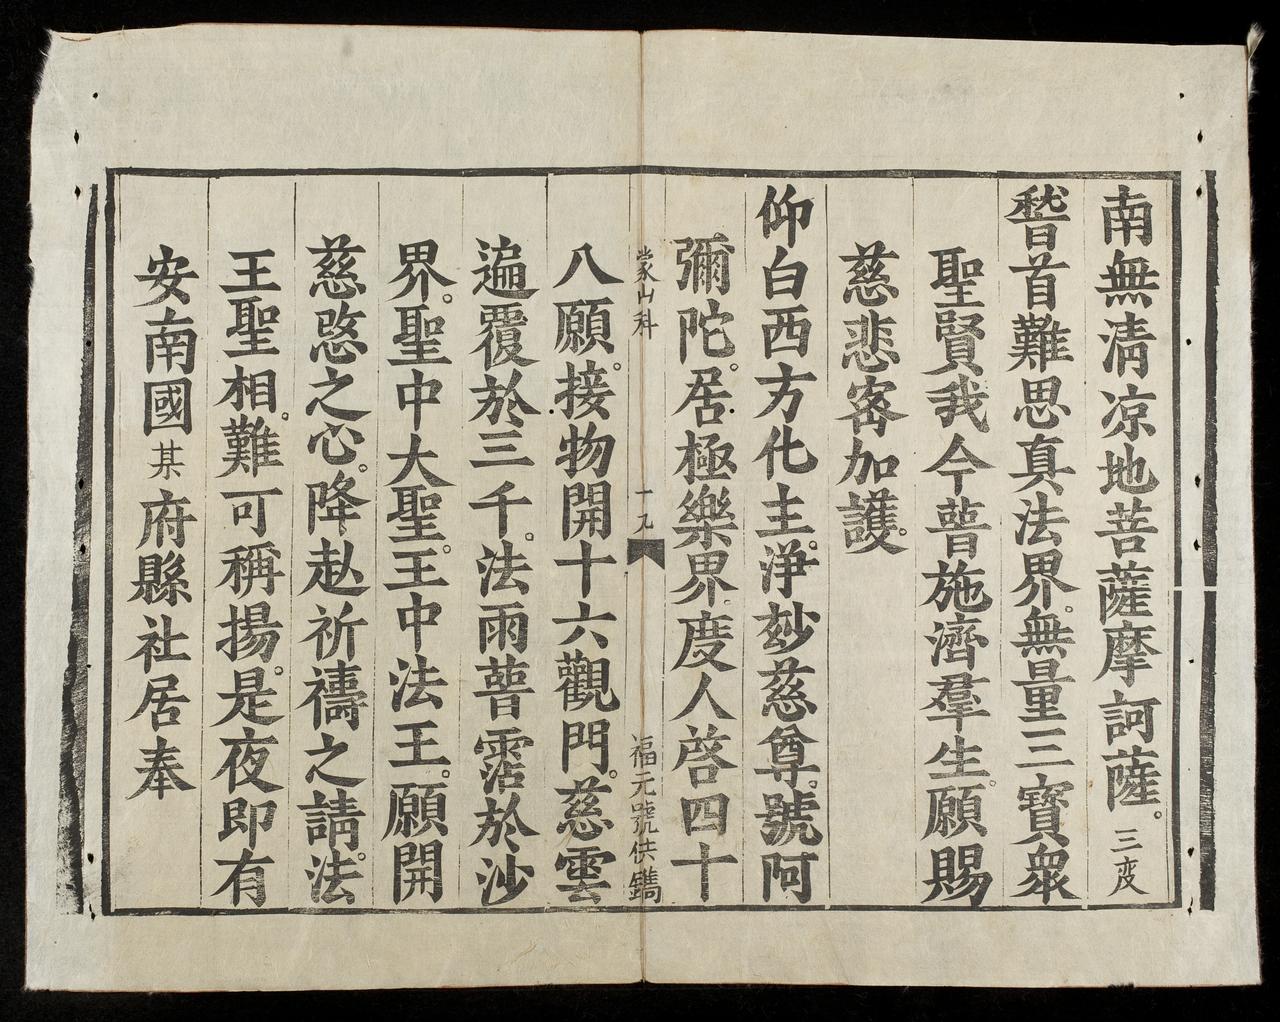 南無清凉地菩薩摩訶薩。三变
稽首難思真法界。無量三寶衆
聖賢我今普施濟羣生。願賜
慈悲密加護。
仰白西方化主。淨妙慈尊。號阿
彌陀。居極樂界。度人啓四十
蒙山科 十九 福元號供鐫
八願。接物開十六觀門。慈雲
遍覆於三千。法雨普霑於沙
界。聖中大聖。王中法王。願開
慈愍之心。降赴祈禱之請。法
王聖相。難可稱揚。是夜即有
安南國某府縣社居奉